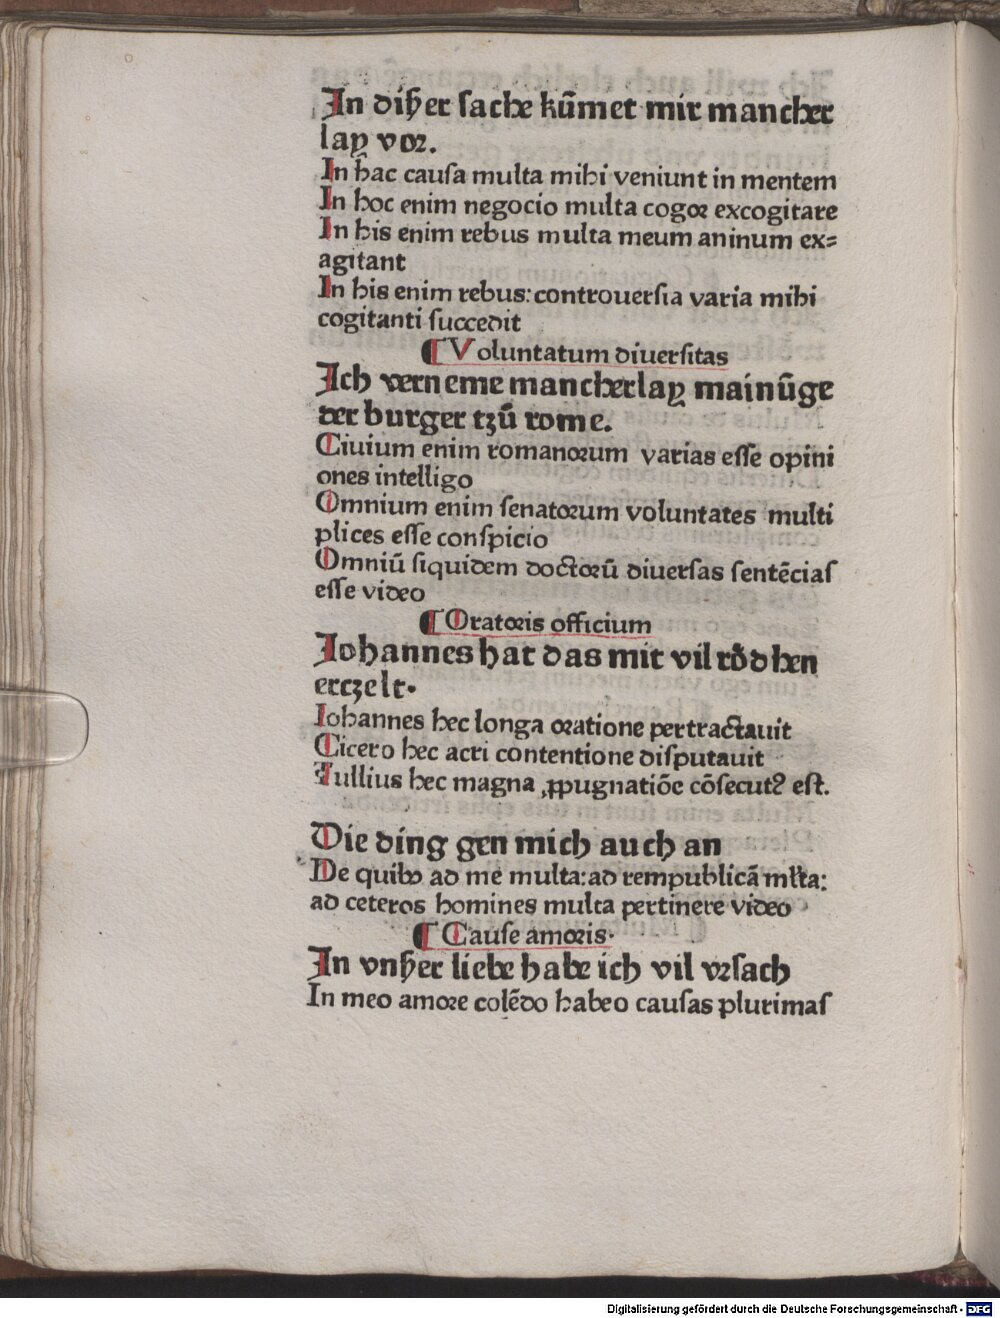 In diſzer ſache kūmet mir mancher
lay vor.
In hac cauſa multa mihi veniunt in mentem
In hoc enim negocio multa cogor excogitare
In his enim rebus multa meum aninum ex⸗
agitant
In his enim rebus: controuerſia varia mihi
cogitanti ſuccedit
¶ Voluntatum diuerſitas
Ich verneme mancherlay mainūge
der burger tzū rome.
Ciuium enim romanorum varias eſſe opini
ones intelligo
Omnium enim ſenatorum voluntates multi
plices eſſe conſpicio
Omniū ſiquidem doctorū diuerſas ſentēciaſ
eſſe video
¶ Oratoris officium
Johannes hat das mit vil rōdhen
erczelt.
Iohannes hec longa oratione pertractauit
Cicero hec acri contentione diſputauit
Tullius hec magna ꝓpugnatiōe cōſecutꝰ eſt.
Die ding gen mich auch an
De quibꝰ ad me multa: ad rempublicā młta:
ad ceteros homines multa pertinere video
¶ Cauſe amoris.
In vnſzer liebe habe ich vil vrſach
In meo amore colēdo habeo cauſas plurimaſ
Digitalisierung gefördert durch die Deutsche Forschungsgemeinschaft - DFG